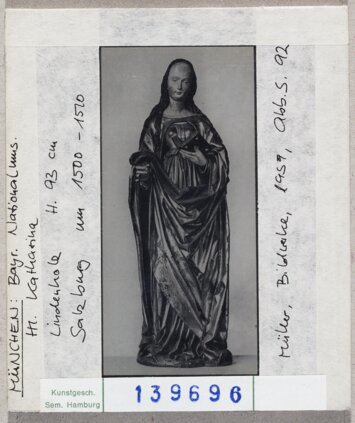 MÜNCHEN: Bayr. Nationalmus.
Hl. Katharina
Lindenholz H. 93 cm
Salzburg um 1500-1510
Müller, Bildwerke, 1959, Abb.S. 92
Kunstgesch.
Sem. Hamburg
139696